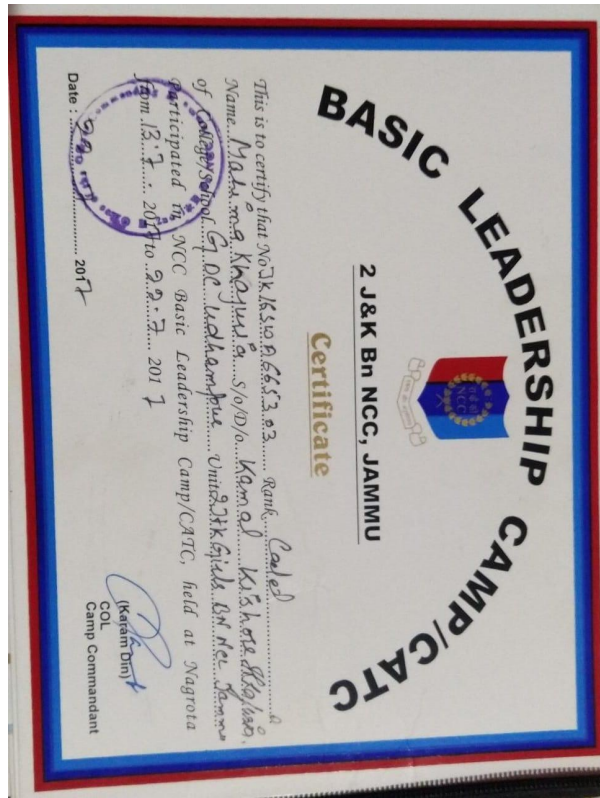 BASIC LEADERSHIP CAMP/CATC
NCC
2 J&K Bn NCC, JAMMU
Certificate
This is to certify that No. Rank Cadet
Name Mahima Khajuria S/o/D/o. Kamal Kishore Khajuria
of College/School GDC Udhampur Unit 2 J&K Girls BN NCC Jammu
Participated in NCC Basic Leadership Camp/CATC, held at Nagrota
from 13.7. 2017 to 22.7. 2017
Date : 2017
(Karam Din)
COL
Camp Commandant